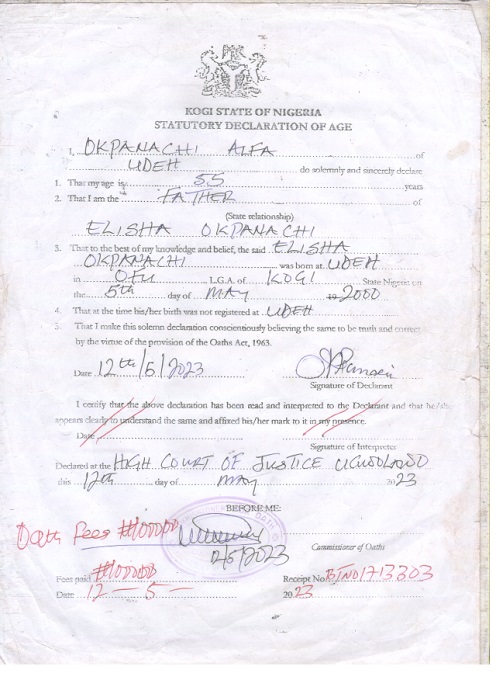 KOGI STATE OF NIGERIA
STATUTORY DECLARATION OF AGE
I, OKPANACHI ALFA of
UDEH do solemnly and sincerely declare
1. That my age is 55 years
2. That I am the FATHER of
(State relationship)
ELISHA OKPANACHI
3. That to the best of my knowledge and belief, the said ELISHA
OKPANACHI was born at UDEH
in OFU L.G.A. of KOGI State Nigeria on
the 5th day of MAY 19 2000
4. That at the time his/her birth was not registered at UDEH
5. That I make this solemn declaration conscientiously believing the same to be truth and correct
by the virtue of the provision of the Oaths Act, 1963.
Date 12th/5/2023
Signature of Declarant
I certify that the above declaration has been read and interpreted to the Declarant and that he/she
appears clearly to understand the same and affixed his/her mark to it in my presence.
Date
Signature of Interpreter
Declared at the HIGH COURT OF JUSTICE UGWOLAWO
this 12th day of MAY 2023
BEFORE ME:
Oath Fees
12/5/2023
Commissioner of Oaths
Fees paid Receipt No
Date 12 - 5 - 2023